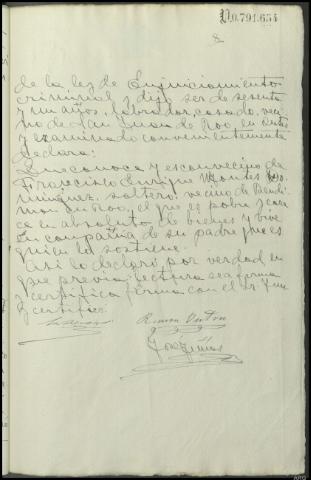 N.0.791.654
8
de la ley de Enjuiciamiento
criminal y dijo ser de sesenta
y un años, labrador, casado, veci
no de San Juan de Roo, en
y examinado convenientemente
declara:
Que conoce y es convecino de
Francisco Enrique Montes Do
minguez, soltero, vecino de
en Roo, el que es pobre y care
ce en absoluto de bienes y vive
en compañia de su padre que es
quien lo sostiene.
Asi lo declaró por verdad en
que previa lectura se afirma
y ratifica firma con el Sr Juez
y certifico.
Ramon
Jose